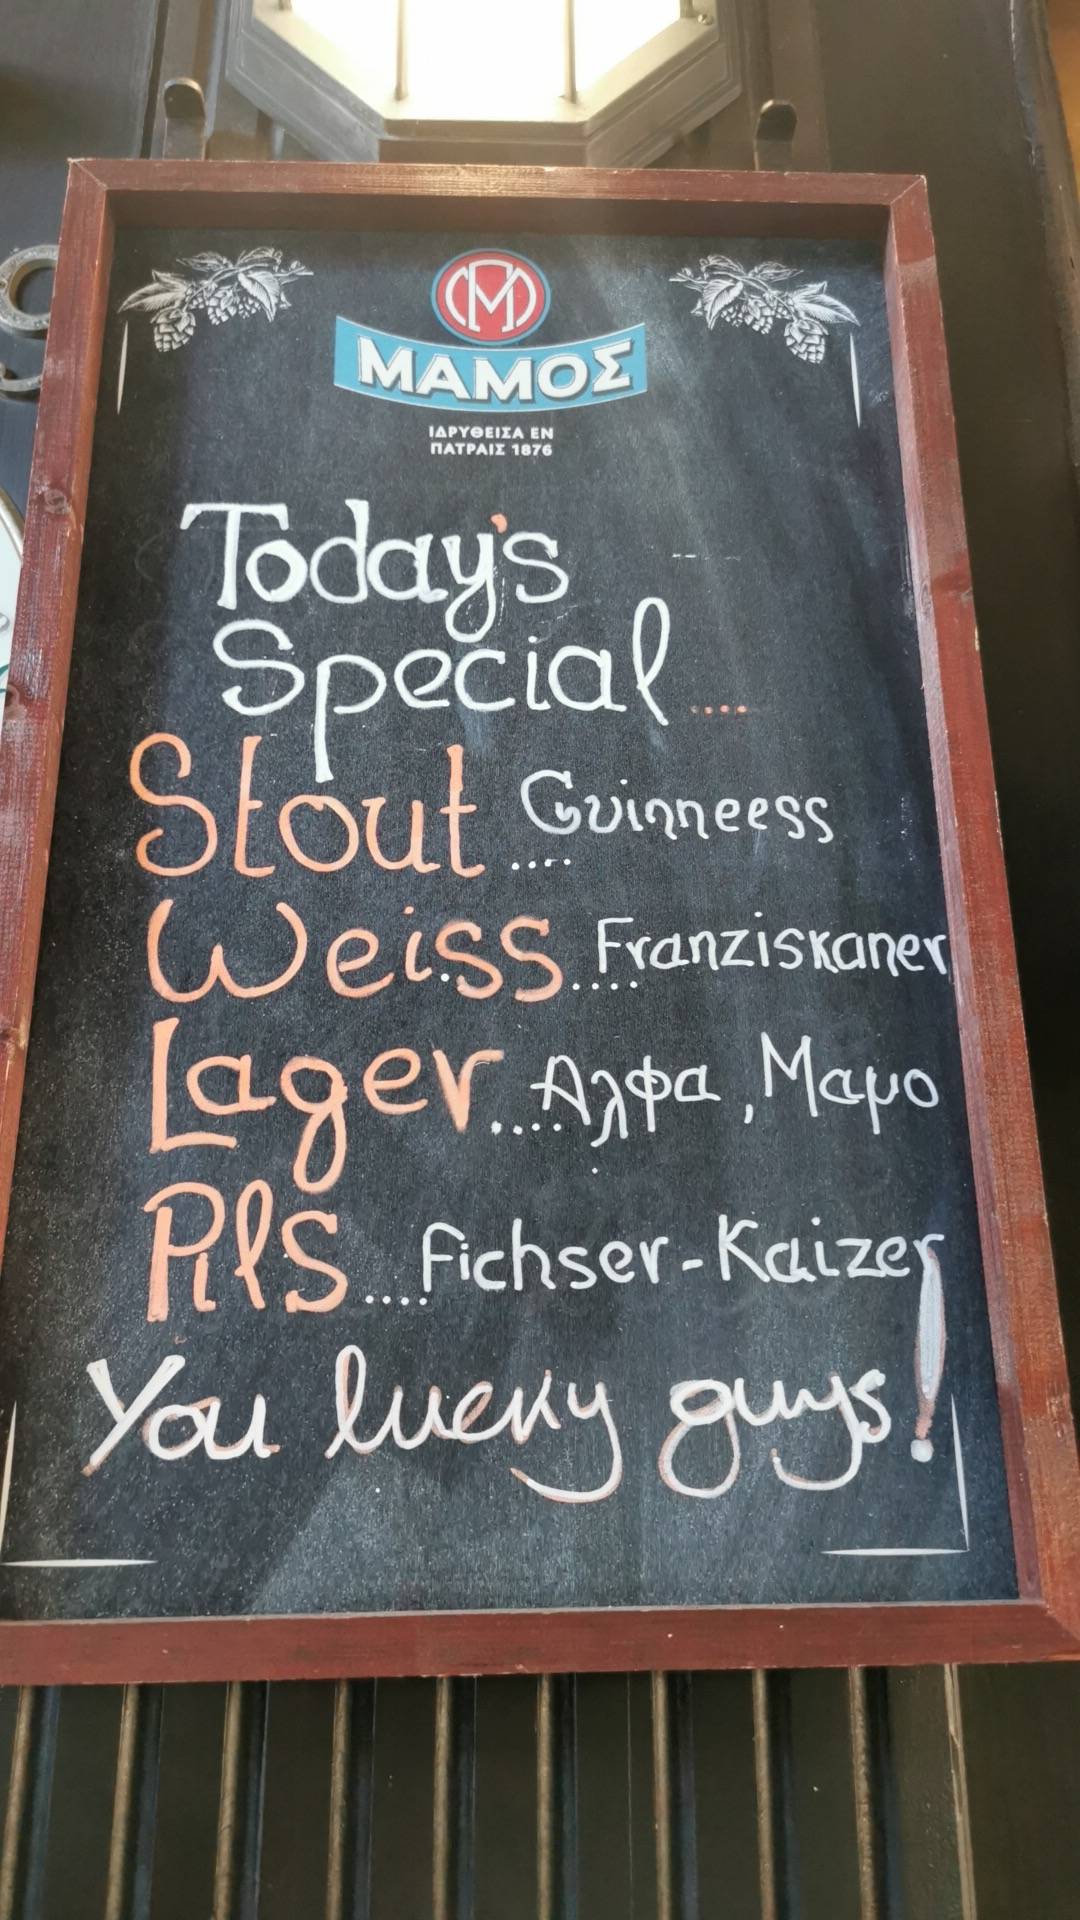 ΜΑΜΟΣ
ΙΔΡΥΘΕΙΣΑ ΕΝ
ΠΑΤΡΑΙΣ 1876
Today's
Special....
Stout.... Guinneess
Weiss.... Franziskaner
Lager.... Αλφα, Μαμο
Pils.... Fichser-Kaizer
You lucky guys!